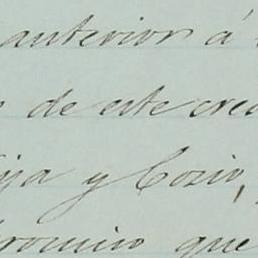 anterior á
de este cre
ija y Cosio,
que